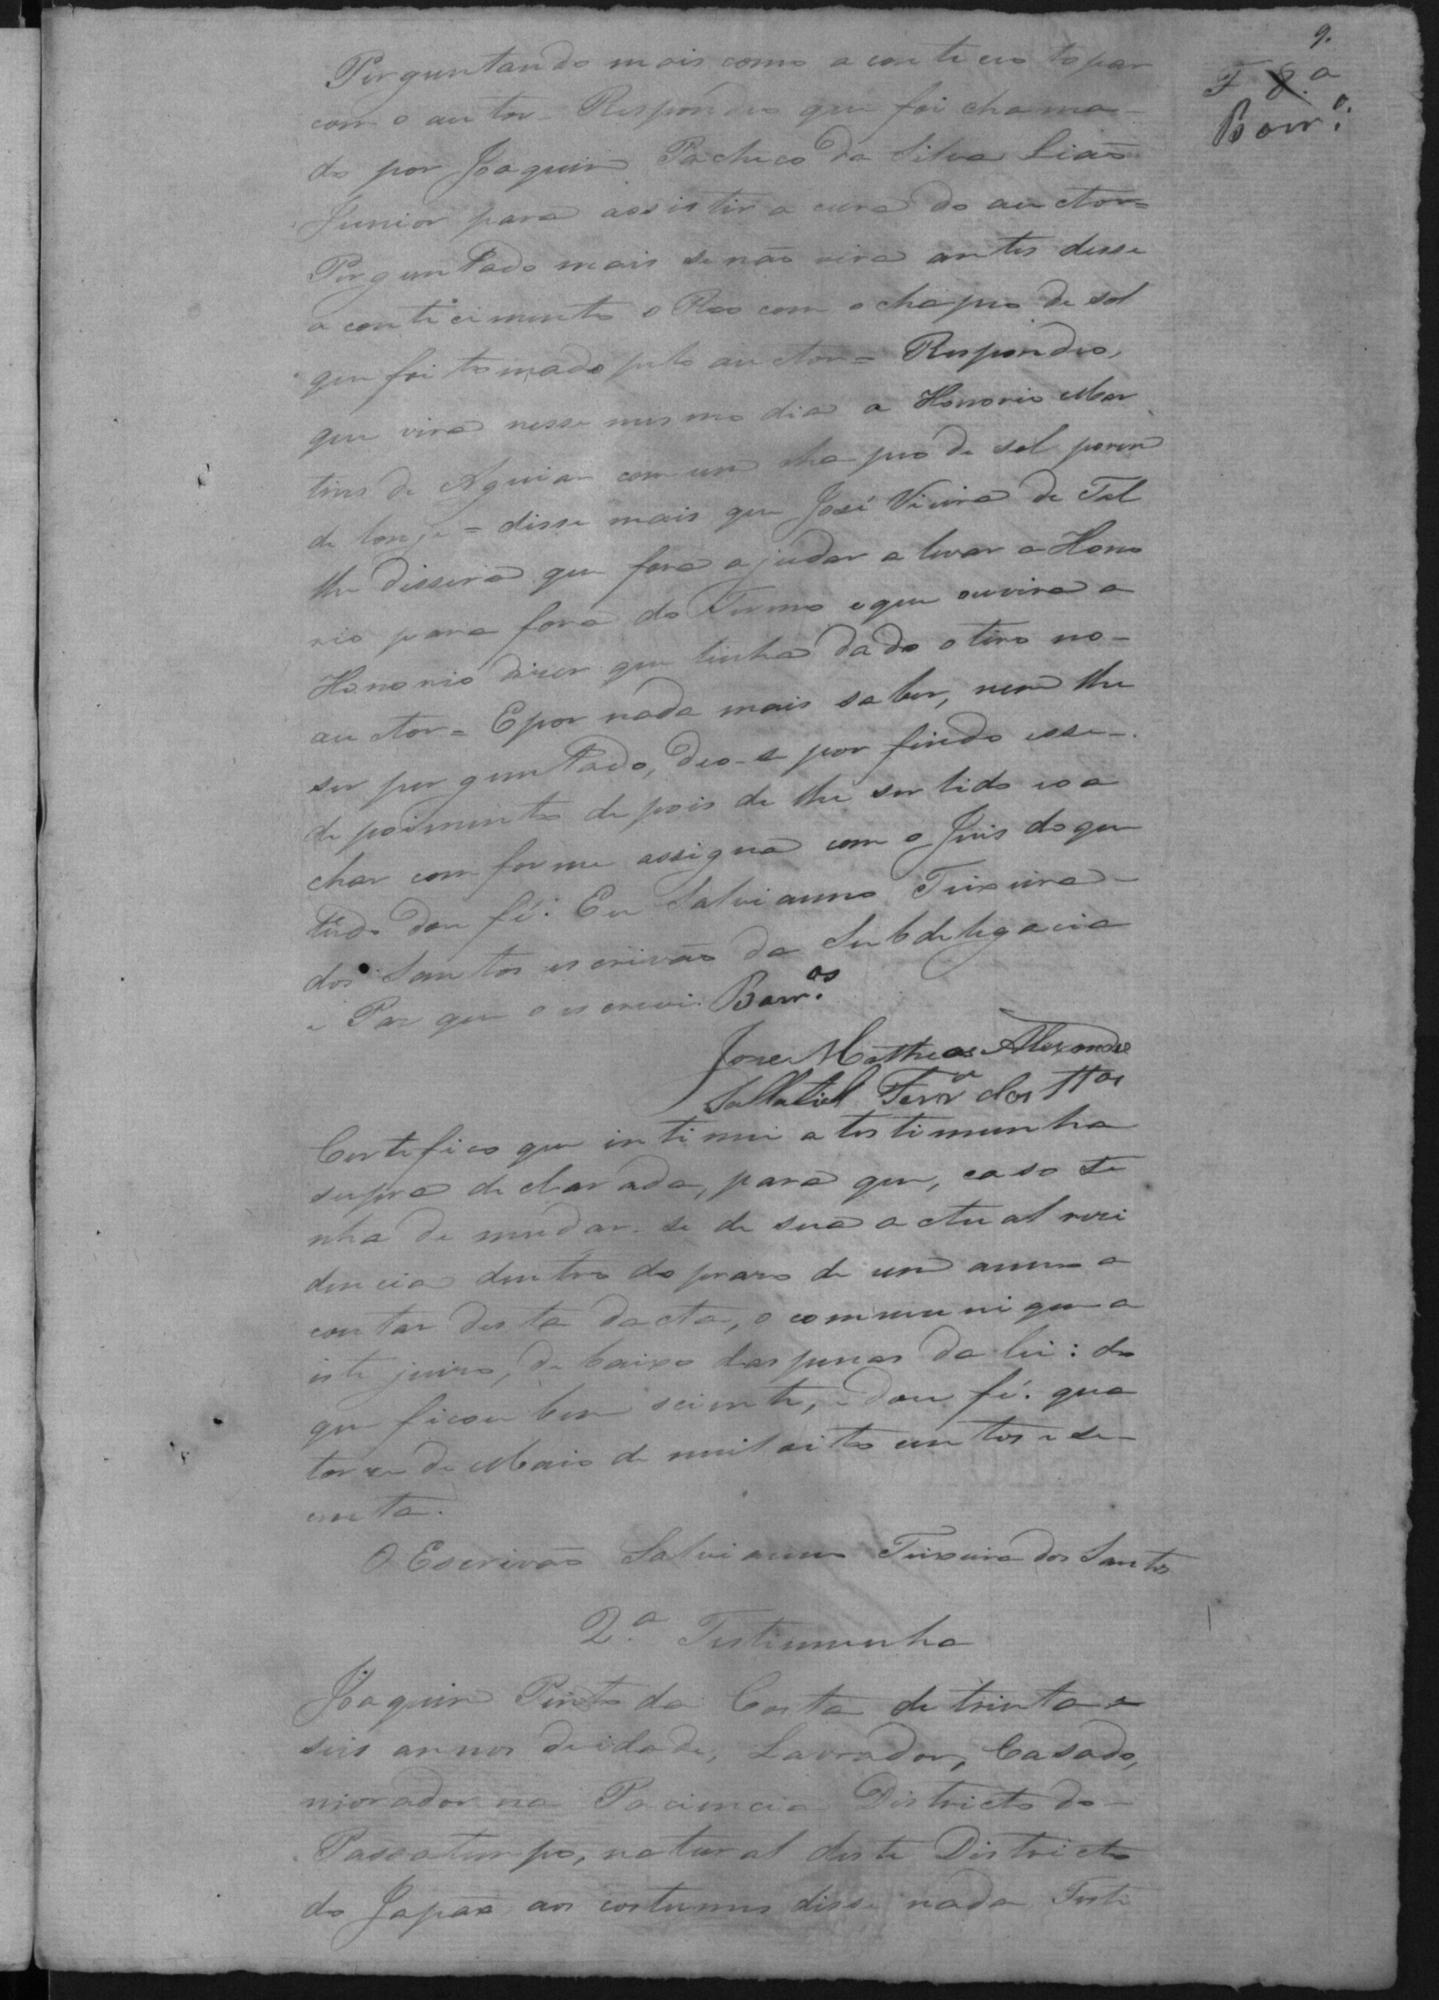 9.
F. 8.ª
Barr.º
Perguntando mais como aconteceo topar
com o autor = Respondeo que foi chama-
do por Joaquim Pacheco da Silva Lião
Junior para assistir a cura do auctor =
Perguntado mais se não vira antes desse
acontecimento o Reo com o chapeo de sol
que foi tomado pelo auctor = Respondeo,
que vira nesse mesmo dia a Honorio Mar
tins de Aguiar com um chapeo de sol porem
de longe = disse mais que José Vieira de Tal
lhe dissera que fora ajudar a levar a Hono
rio para fora do Termo e que ouvira a
Honorio dizer que tinha dado o tiro no-
auctor = E por nada mais saber, nem lhe
ser perguntado, deo-se por findo esse-
depoimento depois de lhe ser lido eo a
char comforme assigna com o Juis do que
tudo dou fé. Eu Salvianno Teixeira-
dos Santos escrivão da Subdelegacia
e Paz que o escrevi. Barr.os
Jose Matheos Alexandre
Ferr.ª dos
Certefico que intimei a testimunha
supra declarada, para que, caso te
nha de mudar-se de sua actual resi
dencia dentro do prazo de um anno a
contar desta dacta, o communique a
este juizo, debaixo das penas da lei: do
que ficou bem sciente, e dou fé. qua
torze de Maio de mil oito centos e se
centa.
O Escrivão Salvianno Teixeira dos Santos
2.ª Testimunha
Joaquim Pinto da Costa de trinta e
seis annos de idade, Lavrador, Casado,
morador na Paciencia Districto do-
Passatempo, natural deste Districto
do Japão aos costumes disse nada Teste